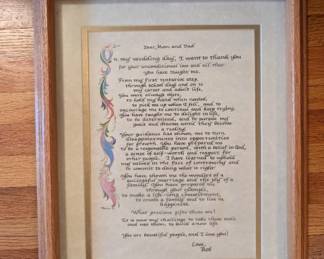 Dear Mom and Dad
On my wedding day, I want to thank you
for your unconditional love and all that
you have taught me.
From my first tentative step
through school days and on to
my career and adult life,
You were always there,
to hold my hand when needed,
to pick me up when I fell, and to
encourage me to continue and keep trying.
You have taught me to delight in life,
to be determined, and to pursue my
goals and dreams until they become
a reality.
Your guidance has shown me to turn
disappointments into opportunities
for growth. You have prepared me
to be a responsible person, with a belief in God,
a sense of self-worth and respect for
other people. I have learned to uphold
my values in the face of uncertainty and
to commit to doing what is right.
You have shown me the wonders of a
successful marriage and the joy of a
family. You have prepared me
through your example,
to make a life-long commitment,
to create a family and to live in
happiness.
What precious gifts these are!
It is now my challenge to take these tools
and use them, to build a new life
You are beautiful people, and I love you!
Love,